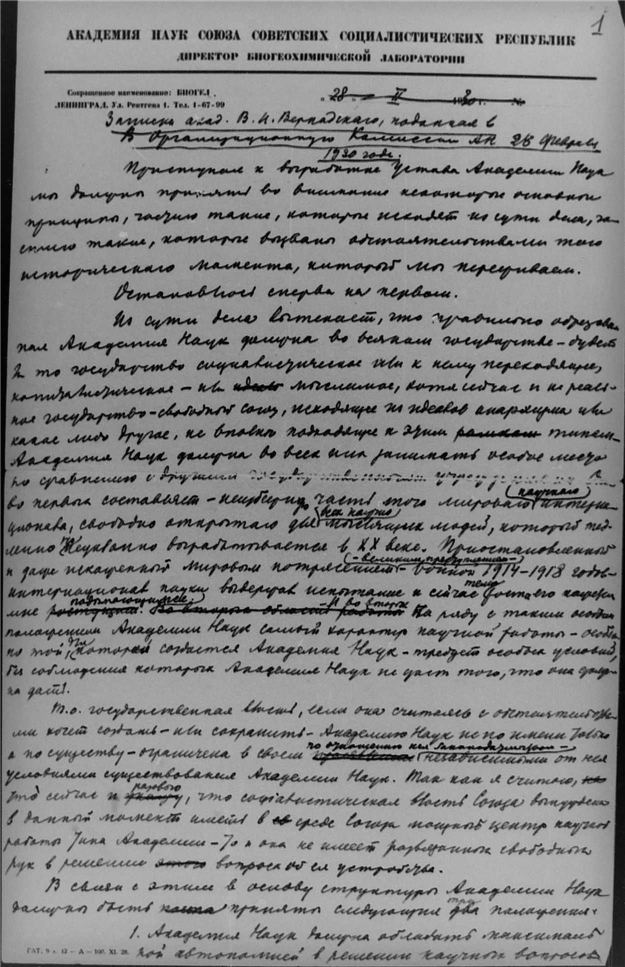 1
АКАДЕМИЯ НАУК СОЮЗА СОВЕТСКИХ СОЦИАЛИСТИЧЕСКИХ РЕСПУБЛИК
ДИРЕКТОР БИОГЕОХИМИЧЕСКОЙ ЛАБОРАТОРИИ
Сокращенное наименование: БИОГЕЛ.
ЛЕНИНГРАД. Ул. Рентгена 1. Тел. 1-67-99
"28 II 30 г.
Записка акад. В. И. Вернадского, поданная в
в Организационную Комиссию АН 28 февраля
1930 года
Приступая к выработке Устава Академии Наук
мы должны принять во внимание некоторые основные
принципы, частию такие, которые исходят из сути дела, ча-
стию такие, которые вызваны обстоятельствами того
исторического момента, который мы переживаем.
Остановлюсь сперва на первом.
Из сути дела вытекает, что правильно образован-
ная Академия Наук должна во всяком государстве - будет
ли то государство социалистическое или к нему переходящее,
капиталистическое - или мыслимое, хотя сейчас и не реаль-
ное государство - свободный союз, исходящее из идеалов анархизма или
какое либо другое, не вполне подходящее к этим типам -
Академия Наук должна во всех них занимать особое место
по сравнению с другими государственными учреждениями
во первых составляет - неизбежно часть того мирового научного интерна-
ционала, свободно открытого для всех научно мыслящих людей, который
медленно неуклонно вырабатывается в XX веке. Приостановленный
и даже искаженный мировым потрясением - великим преступлением - войной 1914-1918 годов -
интернационал науки выдержал испытание и сейчас
На ряду с таким особым
положением Академии Наук самый характер научной работы - особен-
но той, для которой создается Академия Наук - требует особых условий,
без соблюдения которых Академия Наук не даст того, что она долж-
на дать.
Т.о. государственная власть, если она считаясь с обстоятельства-
ми хочет создать - или сохранить - Академию Наук не по имени только
а по существу - ограничена в своем по отношению к ней законодательстве - независимыми от нея
условиями существования Академии Наук. Так как я считаю,
что сейчас и, что социалистическая власть Союза вынуждена
в данный момент иметь в среде Союза мощный центр научной
работы типа Академии - то и она не имеет развязанных свободных
рук в решении этого вопроса об ея устройстве.
В связи с этим в основу структуры Академии Наук
должны быть приняты следующия два положения:
1. Академия Наук должна обладать максималь-
ной автономией в решении научных вопросов
ГЛТ. 9 з. 12 - А - 100. XI. 29.